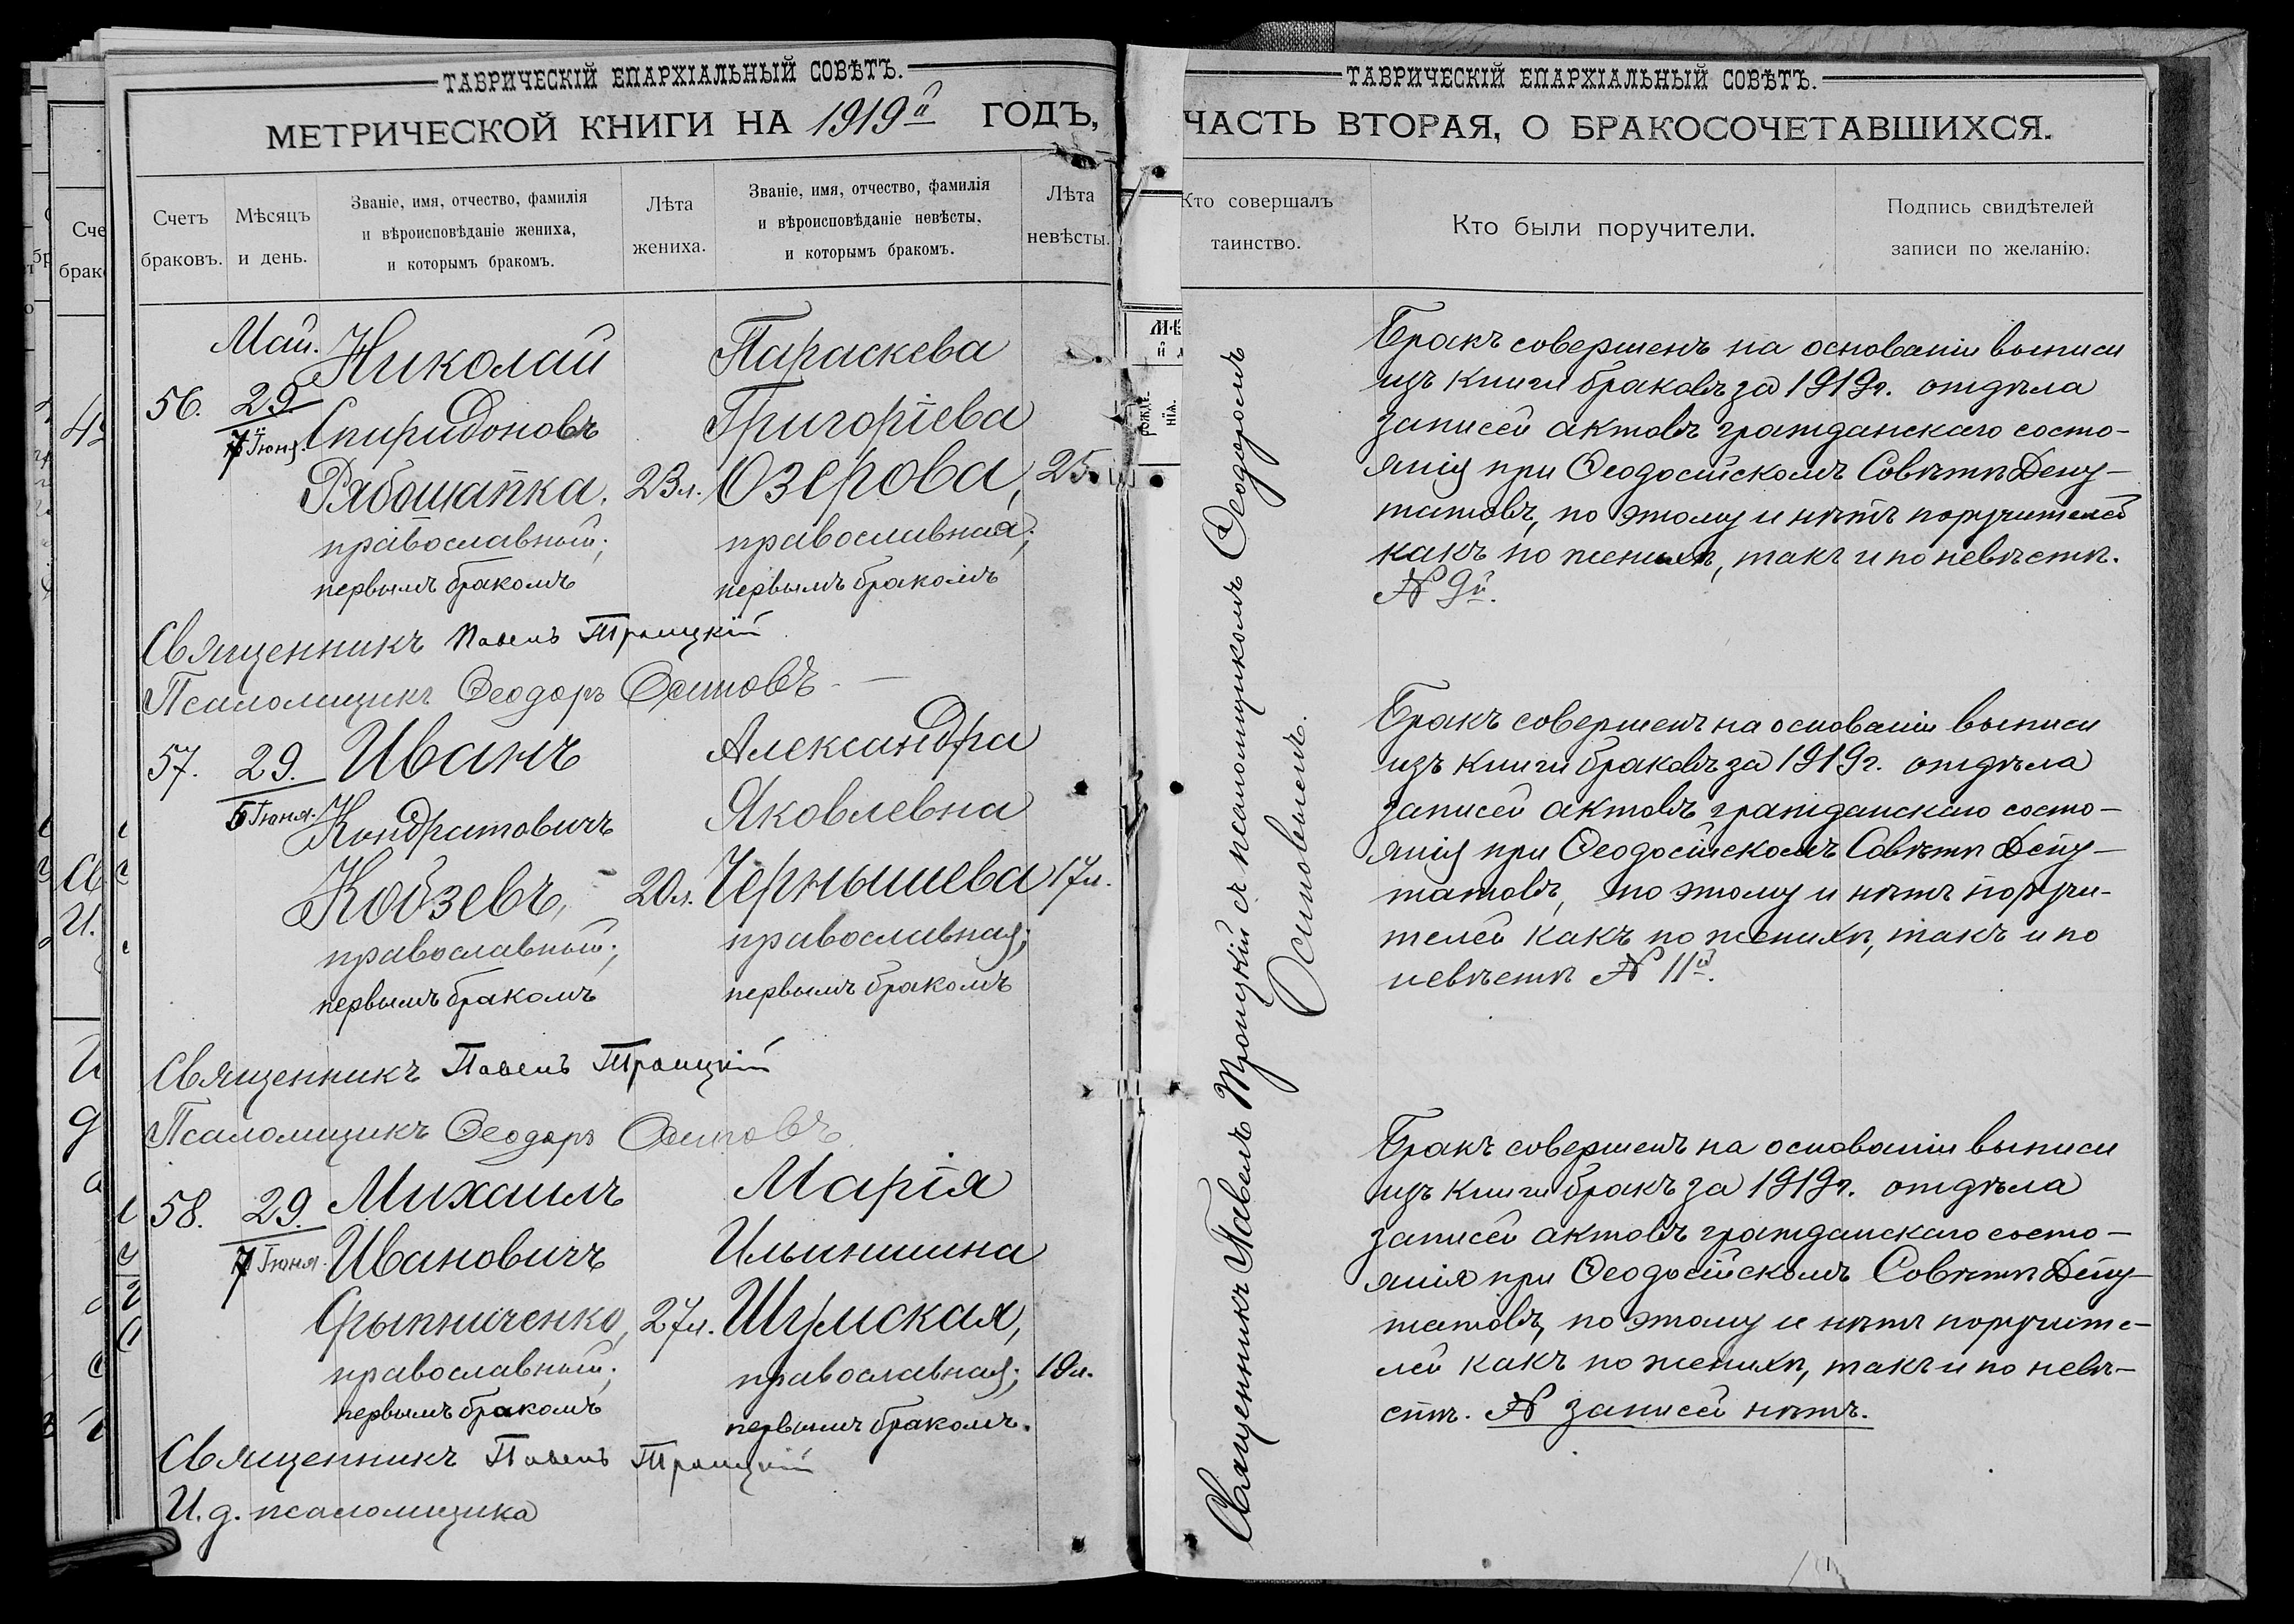 ТАВРИЧЕСКІЙ ЕПАРХІАЛЬНЫЙ СОВѢТЪ.
МЕТРИЧЕСКОЙ КНИГИ НА 1919й ГОДЪ,
Счетъ браковъ.
Мѣсяцъ и день.
Званіе, имя, отчество, фамилія
и вѣроисповѣданіе жениха,
и которымъ бракомъ.
Лѣта жениха.
Званіе, имя, отчество, фамилія
и вѣроисповѣданіе невѣсты,
и которымъ бракомъ.
Лѣта невѣсты.
56.
Май.
29.
7 Іюня.
Николай
Спиридоновъ
Рябошапка,
православный;
первымъ бракомъ
23 л.
Параскева
Григоріева
Озерова,
православная;
первымъ бракомъ
25
Священникъ Павелъ Троицкій
Псаломщикъ Ѳеодоръ Осиповъ
57.
29.
5 Іюня.
Иванъ
Кондратовичъ
Кобзевъ,
православный;
первымъ бракомъ
20 л.
Александра
Яковлевна
Чернышева
православная;
первымъ бракомъ
17 л.
Священникъ Павелъ Троицкій
Псаломщикъ Ѳеодоръ Осиповъ
58.
29.
7 Іюня.
Михаилъ
Ивановичъ
православный;
первымъ бракомъ
27 л.
Марія
Ильинишна
Шумская,
православная;
первымъ бракомъ.
19 л.
Священникъ Павелъ Троицкій
И. д. псаломщика
ТАВРИЧЕСКІЙ ЕПАРХІАЛЬНЫЙ СОВѢТЪ.
ЧАСТЬ ВТОРАЯ, О БРАКОСОЧЕТАВШИХСЯ.
Кто совершалъ
таинство.
Кто были поручители.
Подпись свидѣтелей
записи по желанію.
Священникъ Павелъ Троицкій съ псаломщикомъ Ѳеодоромъ
Осиповымъ.
Бракъ совершенъ на основаніи выписи
изъ книги браковъ за 1919г. отдѣла
записей актовъ гражданскаго состо-
янія при Ѳеодосійскомъ Совѣтѣ Депу-
татовъ, по этому и нѣтъ поручителей
какъ по женихѣ, такъ и по невѣстѣ.
№ 9й.
Бракъ совершенъ на основаніи выписи
изъ книги браковъ за 1919г. отдѣла
записей актовъ гражданскаго состо-
янія при Ѳеодосійскомъ Совѣтѣ Депу-
татовъ, по этому и нѣтъ поручи-
телей какъ по женихѣ, такъ и по
невѣстѣ № 11й.
Бракъ совершенъ на основаніи выписи
изъ книги бракъ за 1919г. отдѣла
записей актовъ гражданскаго состо-
янія при Ѳеодосійскомъ Совѣтѣ Депу-
татовъ, по этому и нѣтъ поручите-
лей какъ по женихѣ, такъ и по невѣ-
стѣ. № записей нѣтъ.